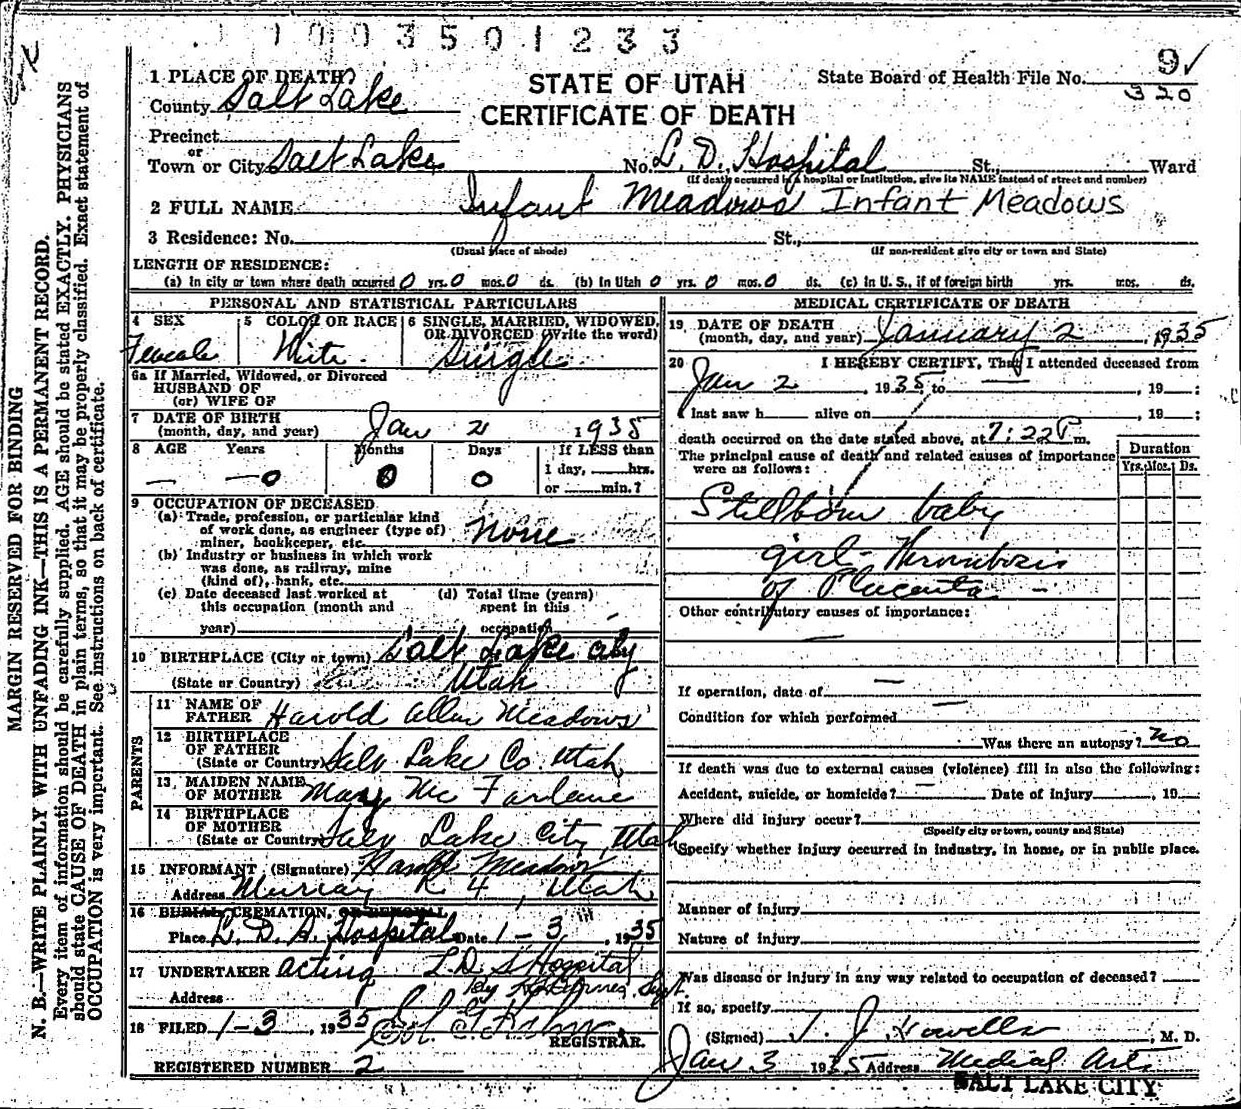 1003501233
9✓
1 PLACE OF DEATH
STATE OF UTAH
State Board of Health File No.
320
County Salt Lake
CERTIFICATE OF DEATH
Precinct
or
Town or City Salt Lake No. L. D. Hospital St., Ward
(If death occurred in a hospital or institution, give its NAME instead of street and number)
2 FULL NAME Infant Meadows Infant Meadows
3 Residence: No. St.,
(Usual place of abode) (If non-resident give city or town and State)
LENGTH OF RESIDENCE:
(a) In city or town where death occurred 0 yrs. 0 mos. 0 ds. (b) In Utah 0 yrs. 0 mos. 0 ds. (c) In U. S., if of foreign birth yrs. mos. ds.
PERSONAL AND STATISTICAL PARTICULARS
4 SEX
Female
5 COLOR OR RACE
White
6 SINGLE, MARRIED, WIDOWED, OR DIVORCED (Write the word)
Single
6a If Married, Widowed, or Divorced
HUSBAND OF
(or) WIFE OF
7 DATE OF BIRTH
(month, day, and year) Jan 2 1935
8 AGE Years Months Days If LESS than
— — 0 0 0 1 day, hrs.
or min.?
9 OCCUPATION OF DECEASED
(a) Trade, profession, or particular kind
of work done, as engineer (type of)
miner, bookkeeper, etc. None
(b) Industry or business in which work
was done, as railway, mine
(kind of), bank, etc.
(c) Date deceased last worked at
this occupation (month and
year)
(d) Total time (years)
spent in this
occupation
10 BIRTHPLACE (City or town) Salt Lake City
(State or Country) Utah
PARENTS
11 NAME OF
FATHER Harold Allen Meadows
12 BIRTHPLACE
OF FATHER
(State or Country) Salt Lake Co. Utah
13 MAIDEN NAME
OF MOTHER Mary Mc Farlane
14 BIRTHPLACE
OF MOTHER
(State or Country) Salt Lake City, Utah
15 INFORMANT (Signature) Harold Meadows
Address Murray R 4, Utah
16 BURIAL, CREMATION, OR REMOVAL
Place L. D. S. Hospital Date 1-3, 1935
17 UNDERTAKER acting L D S Hospital
By Supt.
Address
18 FILED 1-3, 1935
REGISTRAR.
REGISTERED NUMBER 2
MEDICAL CERTIFICATE OF DEATH
19 DATE OF DEATH
(month, day, and year) January 2, 1935
20 I HEREBY CERTIFY, That I attended deceased from
Jan 2, 1935 to —, 19 :
I last saw h alive on, 19 ;
death occurred on the date stated above, at 7:22 P m.
The principal cause of death and related causes of importance
were as follows:
Duration
Yrs. Mos. Ds.
Stillborn baby
girl - Thrombosis
of Placenta -
Other contributory causes of importance:
—
If operation, date of —
Condition for which performed —
Was there an autopsy? No
If death was due to external causes (violence) fill in also the following:
Accident, suicide, or homicide? — Date of injury, 19
Where did injury occur?
(Specify city or town, county and State)
Specify whether injury occurred in industry, in home, or in public place.
Manner of injury
Nature of injury
Was disease or injury in any way related to occupation of deceased?
If so, specify
(Signed) J. J. Howells, M. D.
Jan 3 1935 Address Medical Arts
SALT LAKE CITY
MARGIN RESERVED FOR BINDING
N. B.—WRITE PLAINLY WITH UNFADING INK—THIS IS A PERMANENT RECORD.
Every item of information should be carefully supplied. AGE should be stated EXACTLY. PHYSICIANS
should state CAUSE OF DEATH in plain terms, so that it may be properly classified. Exact statement of
OCCUPATION is very important. See instructions on back of certificate.